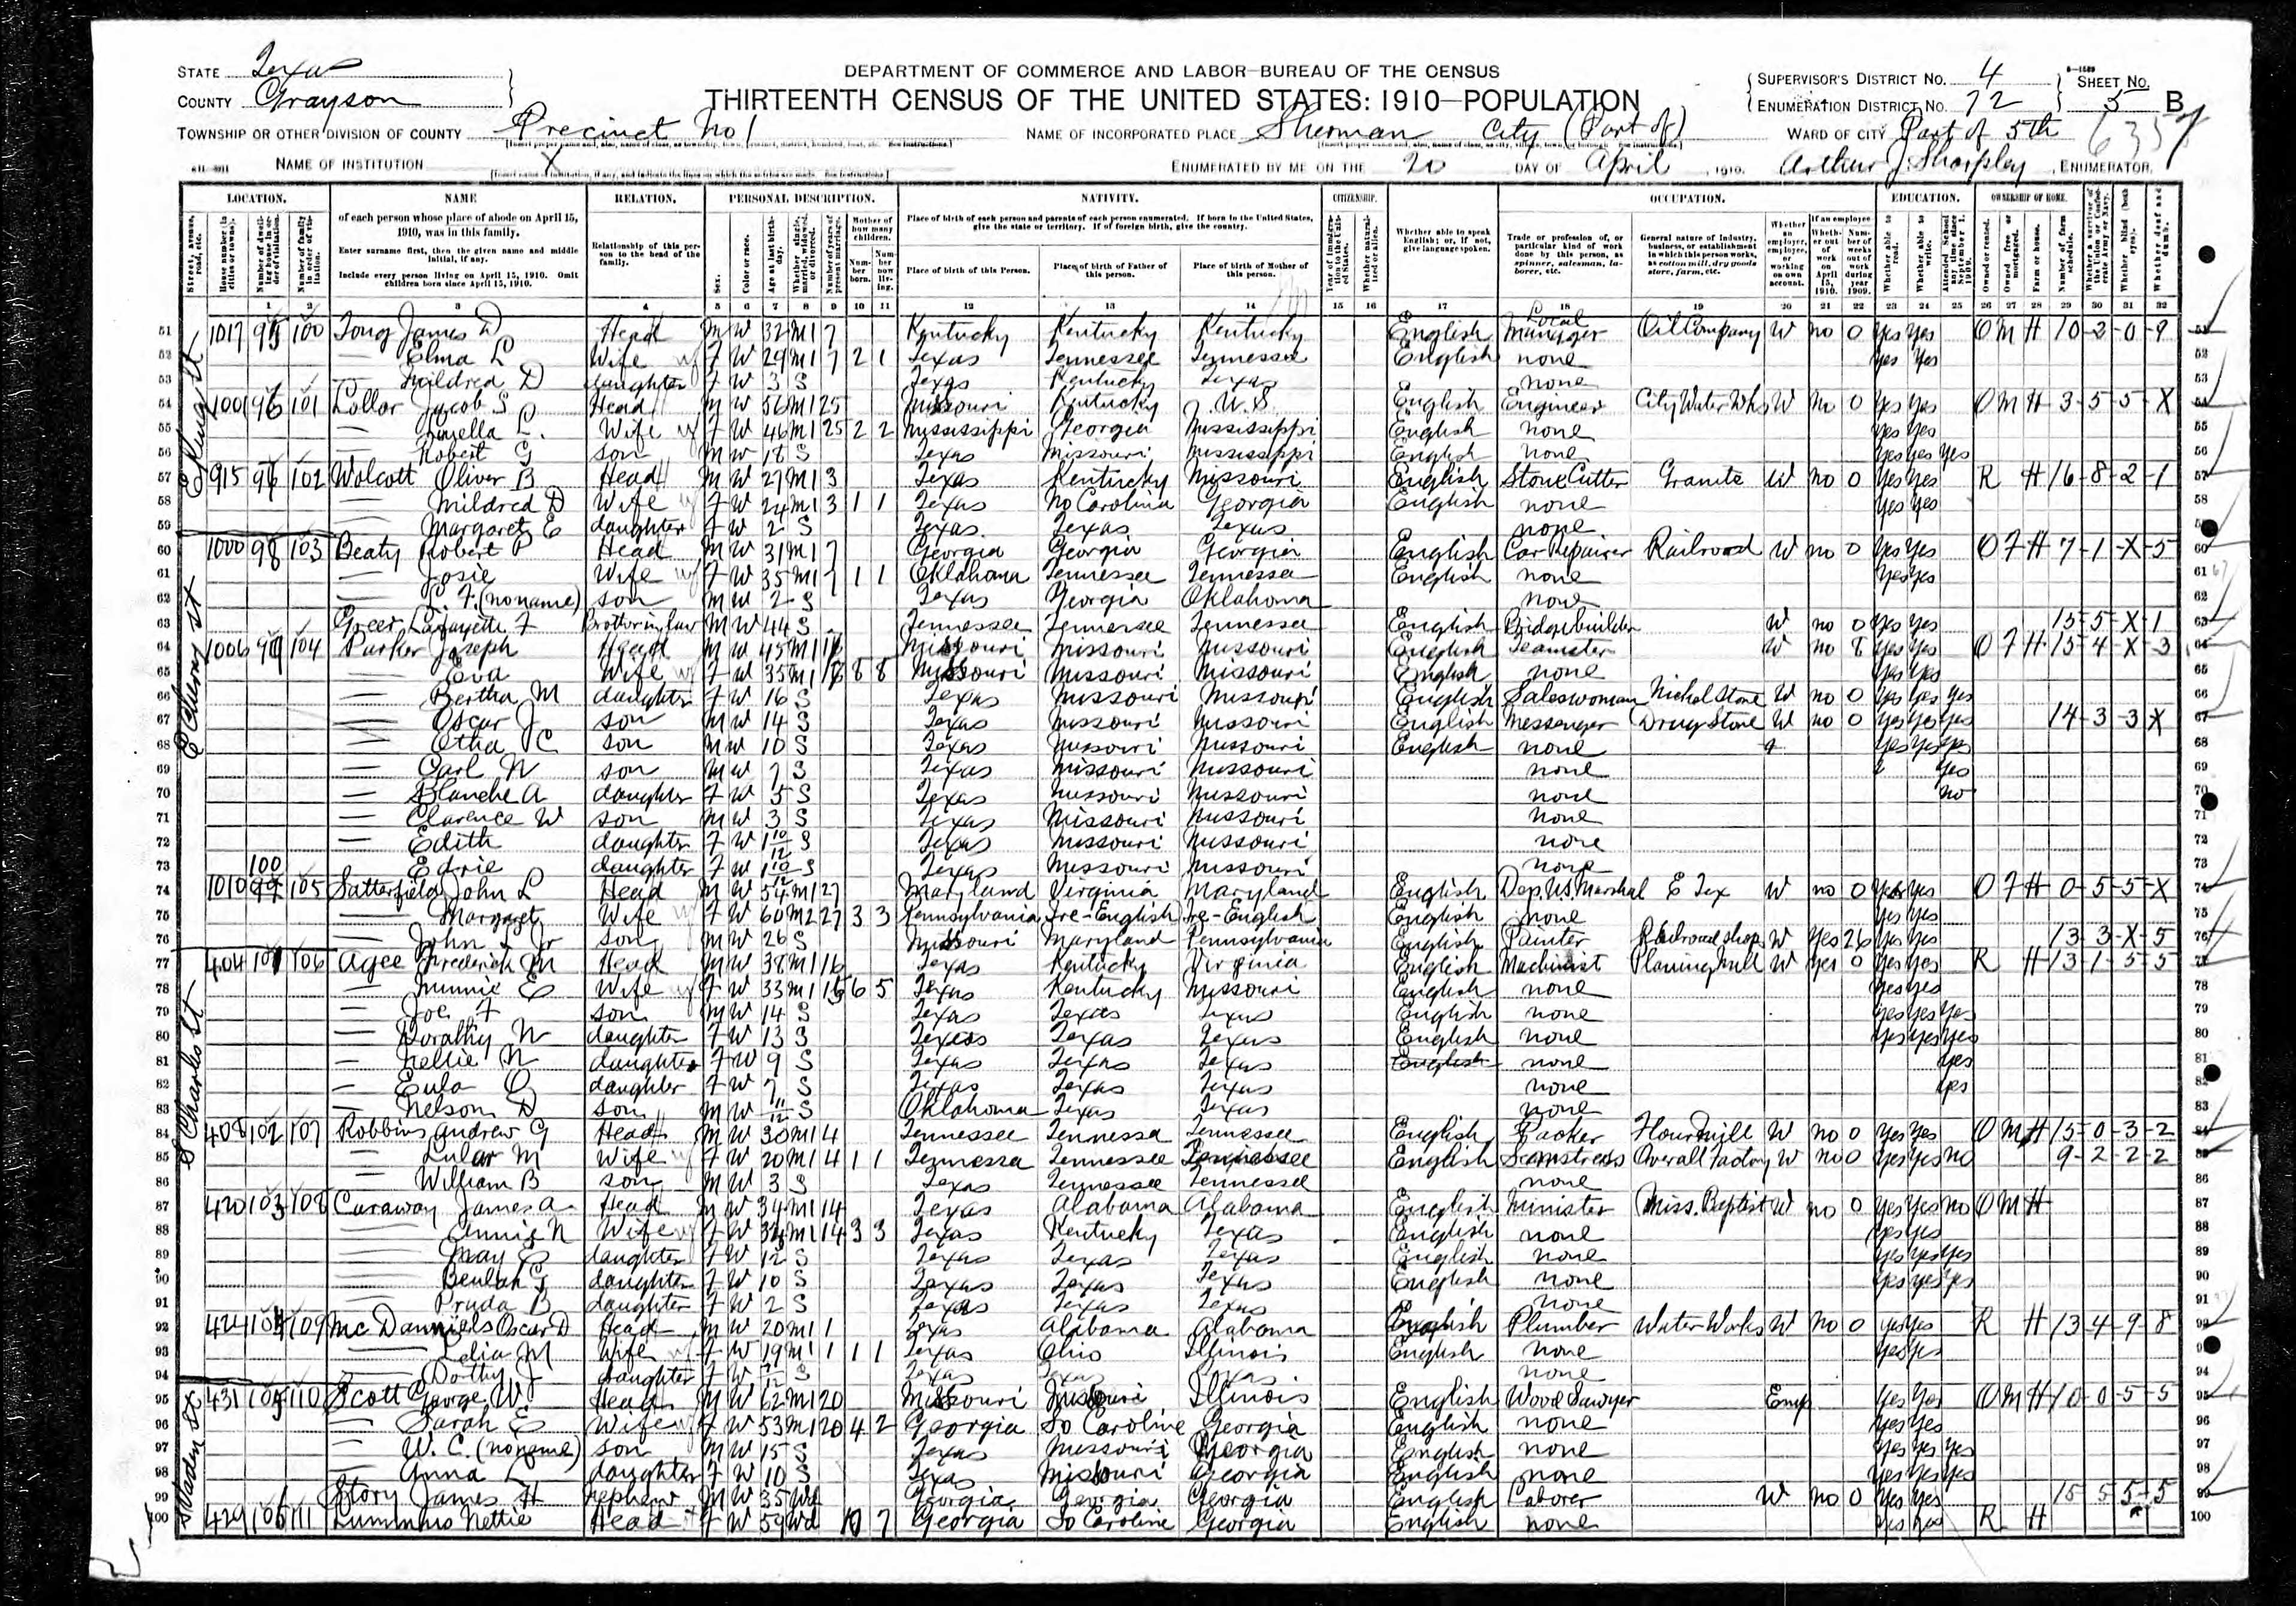 STATE Texas
COUNTY Grayson
DEPARTMENT OF COMMERCE AND LABOR—BUREAU OF THE CENSUS
THIRTEENTH CENSUS OF THE UNITED STATES: 1910—POPULATION
SUPERVISOR'S DISTRICT No. 4
ENUMERATION DISTRICT No. 72
SHEET No. 5 B
TOWNSHIP OR OTHER DIVISION OF COUNTY Precinct No 1
NAME OF INCORPORATED PLACE Sherman City (Part of)
WARD OF CITY Part of 5th
NAME OF INSTITUTION X
ENUMERATED BY ME ON THE 20 DAY OF April, 1910. Arthur J Sharpley, ENUMERATOR.
LOCATION. NAME RELATION. PERSONAL DESCRIPTION. NATIVITY. CITIZENSHIP. OCCUPATION. EDUCATION. OWNERSHIP OF HOME.
of each person whose place of abode on April 15, 1910, was in this family.
Enter surname first, then the given name and middle initial, if any.
Include every person living on April 15, 1910. Omit children born since April 15, 1910.
Relationship of this person to the head of the family.
Place of birth of each person and parents of each person enumerated. If born in the United States, give the state or territory. If of foreign birth, give the country.
Place of birth of this Person. Place of birth of Father of this person. Place of birth of Mother of this person.
Whether able to speak English; or, if not, give language spoken.
Trade or profession of, or particular kind of work done by this person, as spinner, salesman, laborer, etc.
General nature of industry, business, or establishment in which this person works, as cotton mill, dry goods store, farm, etc.
1 2 3 4 5 6 7 8 9 10 11 12 13 14 15 16 17 18 19 20 21 22 23 24 25 26 27 28 29 30 31 32
51 1017 100 James D Head M W 32 M1 7 Kentucky Kentucky Kentucky English Local Manager Oil Company W no 0 yes yes O M H 10-2-0-9
52 — Elma L Wife F W 29 M1 7 2 1 Texas Tennessee Tennessee English none yes yes
53 — Mildred D daughter F W 3 S Texas Kentucky Texas none
54 1001 96 101 Lollar Jacob S Head M W 56 M1 25 Missouri Kentucky U.S. English Engineer City Water Wks W no 0 yes yes O M H 3-5-5-X
55 — Luella L. Wife F W 46 M1 25 2 2 Mississippi Georgia Mississippi English none yes yes
56 — Robert G son M W 18 S Texas Missouri Mississippi English none yes yes yes
57 915 97 102 Wolcott Oliver B Head M W 27 M1 3 Texas Kentucky Missouri English Stone Cutter Granite W no 0 yes yes R H 16-8-2-1
58 — Mildred D Wife F W 24 M1 3 1 1 Texas No Carolina Georgia English none yes yes
59 — Margaret E daughter F W 2 S Texas Texas Texas none
E Cherry St
60 1000 98 103 Beaty Robert P Head M W 31 M1 7 Georgia Georgia Georgia English Car Repairer Railroad W no 0 yes yes O F H 7-1-X-5
61 — Josie Wife F W 35 M1 7 1 1 Oklahoma Tennessee Tennessee English none yes yes
62 — (no name) son M W 2 S Texas Georgia Oklahoma none
63 Greer Lafayette F Brother in law M W 44 S Tennessee Tennessee Tennessee English Bridge builder W no 0 yes yes 15-5-X-1
64 1006 99 104 Parker Joseph Head M W 45 M1 Missouri Missouri Missouri English Teamster W no 8 yes yes O F H 15-4-X-3
65 — Eva Wife F W 35 M1 8 8 Missouri Missouri Missouri English none yes yes
66 — Bertha M daughter F W 16 S Texas Missouri Missouri English Saleswoman Nickel Store W no 0 yes yes yes
67 — Oscar J son M W 14 S Texas Missouri Missouri English Messenger Drug Store W no 0 yes yes yes 14-3-3-X
68 — Otha C son M W 10 S Texas Missouri Missouri English none yes yes yes
69 — Carl W son M W 7 S Texas Missouri Missouri none yes
70 — Blanche A daughter F W 5 S Texas Missouri Missouri none no
71 — Clarence W son M W 3 S Texas Missouri Missouri none
72 — Edith daughter F W 1 10/12 S Texas Missouri Missouri none
73 — Edrie daughter F W 1 10/12 S Texas Missouri Missouri none
74 1010 100 105 Satterfield John L Head M W 54 M1 27 Maryland Virginia Maryland English Dep. U.S. Marshal E Tex W no 0 yes yes O F H 0-5-5-X
75 — Margaret Wife F W 60 M2 27 3 3 Pennsylvania Ire-English Ire-English English none yes yes
76 — John L Jr son M W 26 S Missouri Maryland Pennsylvania English Painter Railroad shop W yes 26 yes yes 13-3-X-5
S Charles St
77 404 101 106 Agee Frederick M Head M W 38 M1 16 Texas Kentucky Virginia English Machinist Planing mill W yes 0 yes yes R H 13-1-5-5
78 — Minnie E Wife F W 33 M1 16 6 5 Texas Kentucky Missouri English none yes yes
79 — Joe F son M W 14 S Texas Texas Texas English none yes yes yes
80 — Dorathy N daughter F W 13 S Texas Texas Texas English none yes yes yes
81 — Nellie N daughter F W 9 S Texas Texas Texas English none yes
82 — Eula O daughter F W 7 S Texas Texas Texas none yes
83 — Nelson D son M W 11/12 S Oklahoma Texas Texas none
84 408 102 107 Robbins Andrew G Head M W 30 M1 4 Tennessee Tennessee Tennessee English Packer Flour mill W no 0 yes yes O M H 15-0-3-2
85 — Lular M Wife F W 20 M1 4 1 1 Tennessee Tennessee Tennessee English Seamstress Overall Factory W no 0 yes yes no 9-2-2-2
86 — William B son M W 3 S Texas Tennessee Tennessee none
87 420 103 108 Caraway James A Head M W 34 M1 14 Texas Alabama Alabama English Minister Miss. Baptist W no 0 yes yes no O M H
88 — Annie N Wife F W 32 M1 14 3 3 Texas Kentucky Texas English none yes yes
89 — May E daughter F W 12 S Texas Texas Texas English none yes yes yes
90 — Beulah G daughter F W 10 S Texas Texas Texas English none yes yes yes
91 — Pruda B daughter F W 2 S Texas Texas Texas none
92 424 104 109 McDanniels Oscar D Head M W 20 M1 1 Texas Alabama Alabama English Plumber Water Works W no 0 yes yes R H 13-4-9-8
93 — Lelia M Wife F W 19 M1 1 1 1 Texas Ohio Illinois English none yes yes
94 — Dothy J daughter F W S Texas Texas Texas none
S Vaden St
95 431 105 110 Scott George W Head M W 62 M1 20 Missouri Missouri Illinois English Wood Sawyer Emp yes yes O M H 10-0-5-5
96 — Sarah E Wife F W 53 M1 20 4 2 Georgia So Caroline Georgia English none yes yes
97 — W. C. (no name) son M W 15 S Texas Missouri Georgia English none yes yes yes
98 — Anna L daughter F W 10 S Texas Missouri Georgia English none yes yes yes
99 Story James H nephew M W 35 Wd Georgia Georgia Georgia English Laborer W no 0 yes yes 15 5 5-5
100 429 106 111 Lummus Nettie Head F W 59 Wd 10 7 Georgia So Caroline Georgia English none yes yes R H